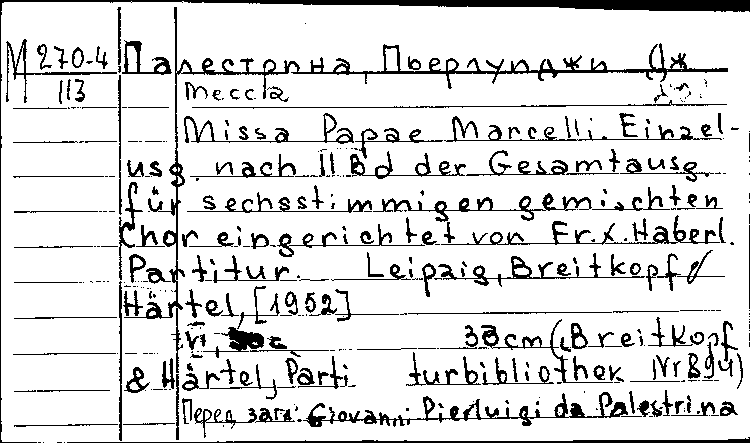 М 270-4 Палестрина, Пьерлуиджи Дж
113 месса
Missa Papae Marcelli. Einzel-
usg. nach II Bd der Gesamtausg.
für sechsstimmigen gemischten
Chor eingerichtet von Fr. X. Haberl.
Partitur. Leipzig, Breitkopf &
Härtel, [1952]
VI, 33cm (Breitkopf
& Härtel, Parti turbibliothek Nr 894)
Перед загл: Giovanni Pierluigi da Palestrina